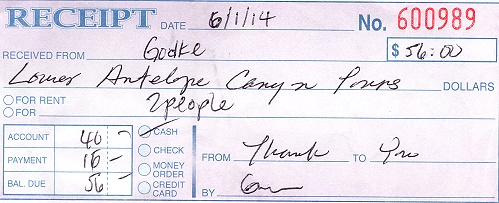 RECEIPT DATE 6/1/14 No. 600989
RECEIVED FROM Godke $ 56:00
Lower Antelope Canyn Tours DOLLARS
FOR RENT
FOR 2people
ACCOUNT 40 - CASH
PAYMENT 16 - CHECK
BAL. DUE 56 - MONEY ORDER
CREDIT CARD
FROM Thank TO You
BY